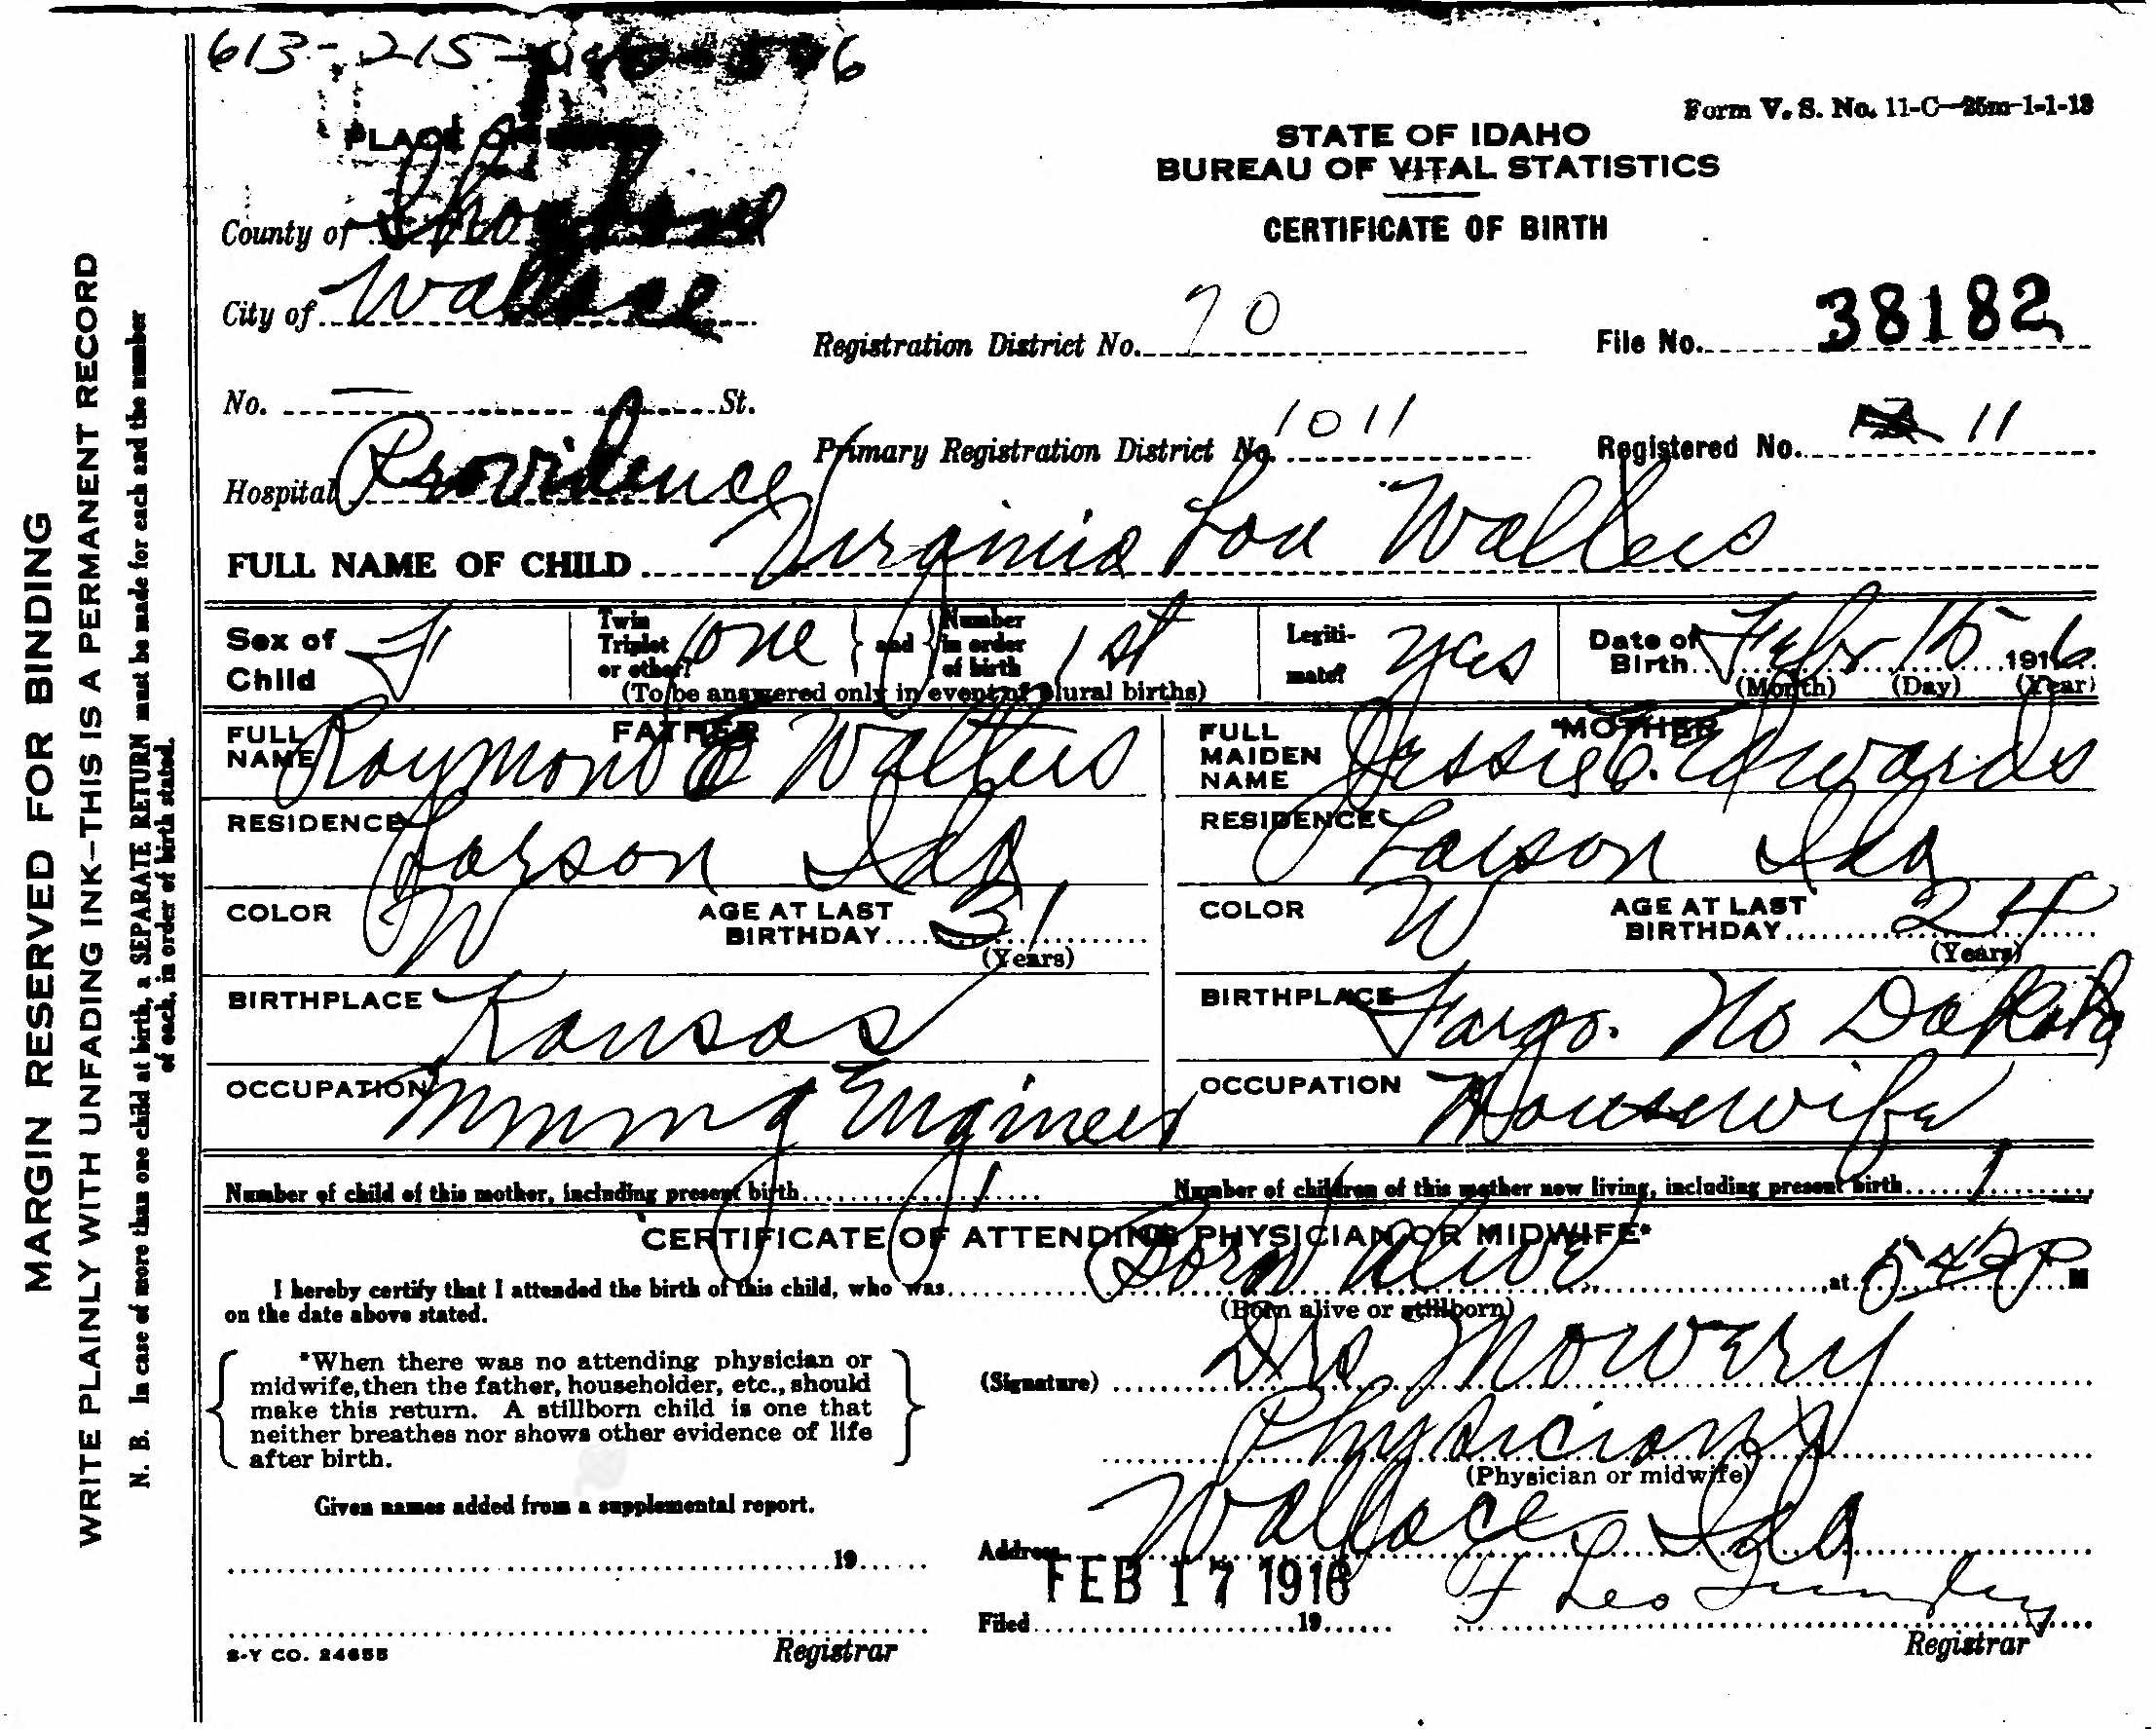 613-215-
Form V. S. No. 11-C—25m-1-1-13
PLACE OF
STATE OF IDAHO
BUREAU OF VITAL STATISTICS
CERTIFICATE OF BIRTH
County of Shoshone
City of Wallace
Registration District No. 70
File No. 38182
No. — St.
Primary Registration District No. 1011
Registered No. 11
Hospital Providence
FULL NAME OF CHILD Virginia Lou Walters
Sex of Child F
Twin Triplet or other? one and Number in order of birth 1st
(To be answered only in event of plural births)
Legitimate? yes
Date of Birth Feby 15 1916
(Month) (Day) (Year)
FATHER
FULL NAME Raymond Walters
RESIDENCE Larson Ida
COLOR W AGE AT LAST BIRTHDAY 31
(Years)
BIRTHPLACE Kansas
OCCUPATION Mining Engineer
MOTHER
FULL MAIDEN NAME Jessie C. Edwards
RESIDENCE Larson Ida
COLOR W AGE AT LAST BIRTHDAY 24
(Years)
BIRTHPLACE Fargo. No Dakota
OCCUPATION Housewife
Number of child of this mother, including present birth 1
Number of children of this mother now living, including present birth 1
CERTIFICATE OF ATTENDING PHYSICIAN OR MIDWIFE*
I hereby certify that I attended the birth of this child, who was Born Alive, at 5 42 P M
on the date above stated.
(Born alive or stillborn)
*When there was no attending physician or
midwife, then the father, householder, etc., should
make this return. A stillborn child is one that
neither breathes nor shows other evidence of life
after birth.
(Signature) Drs Mowery
Physicians
(Physician or midwife)
Given names added from a supplemental report.
19
Address Wallace Ida
FEB 17 1916
Filed 19
F Leo
Registrar
Registrar
S-Y CO. 24655
MARGIN RESERVED FOR BINDING
WRITE PLAINLY WITH UNFADING INK—THIS IS A PERMANENT RECORD
N. B. In case of more than one child at birth, a SEPARATE RETURN must be made for each and the number
of each, in order of birth stated.